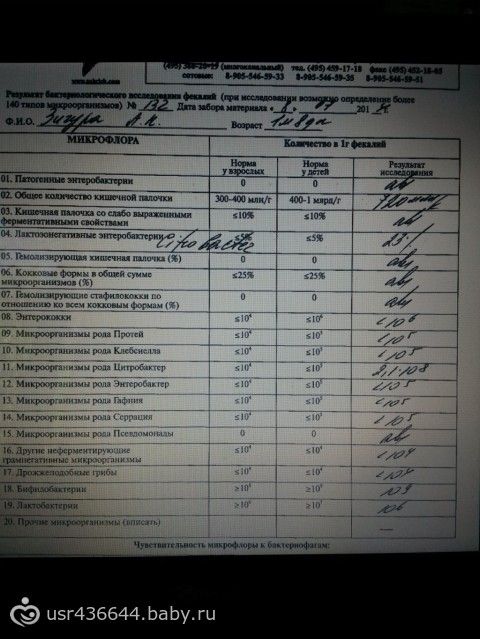 тел. (495) 459-17-18 факс (495) 452-18-65
сотовые: 8-905-546-59-33 8-905-546-59-35 8-905-546-59-51
Результат бактериологического исследования фекалий (при исследовании возможно определение более
140 типов микроорганизмов) № 132 Дата забора материала
Ф.И.О. Возраст
МИКРОФЛОРА Количество в 1г фекалий
Норма у взрослых Норма у детей Результат исследования
01. Патогенные энтеробактерии 0 0 abs
02. Общее количество кишечной палочки 300-400 млн/г 400-1 млрд/г
03. Кишечная палочка со слабо выраженными ферментативными свойствами ≤10% ≤10% abs
04. Лактозонегативные энтеробактерии Citrobacter ≤5% ≤5%
05. Гемолизирующая кишечная палочка (%) 0 0 abs
06. Кокковые формы в общей сумме микроорганизмов (%) ≤25% ≤25% abs
07. Гемолизирующие стафилококки по отношению ко всем кокковым формам (%) 0 0 abs
08. Энтерококки <10⁶
09. Микроорганизмы рода Протей ≤10⁴ ≤10³ <10⁵
10. Микроорганизмы рода Клебсиелла ≤10⁴ ≤10³ <10⁵
11. Микроорганизмы рода Цитробактер ≤10⁴ ≤10³ 2,1·10⁸
12. Микроорганизмы рода Энтеробактер ≤10⁴ ≤10³ <10⁵
13. Микроорганизмы рода Гафния ≤10⁴ ≤10³ <10⁵
14. Микроорганизмы рода Серрация ≤10⁴ ≤10³ <10⁵
15. Микроорганизмы рода Псевдомонады 0 0 abs
16. Другие неферментирующие грамнегативные микроорганизмы ≤10⁴ ≤10⁴ <10⁴
17. Дрожжеподобные грибы ≤10⁴ ≤10⁴ <10⁴
18. Бифидобактерии 10⁹
19. Лактобактерии 10⁶
20. Прочие микроорганизмы (вписать) —
Чувствительность микрофлоры к бактериофагам:
usr436644.baby.ru